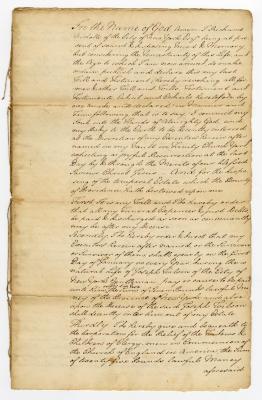 In the Name of God Amen I Richard
of the City of New York Esqr being at pre-
sent of sound & disposing Mind & Memory
but considering the uncertainty of this Life and
the Age to which I am now arrived do make
ordain publish and declare this my last
Will and Testament hereby revoking all for-
mer & other Will and Wills Testament and
Testaments
by me made and declared in Manner and
Form following that is to say I commend my
Soul into the Hands of Almighty God and
my Body to the Earth to be decently interred
at the discretion of my Executors herein after
named in my Vault in Trinity Church Yard
expecting a joyful Resurrection at the last
Day by & through the Merits of our Blessed
Saviour Christ Jesus. And for the dispo-
sing of the worldly Estate which the Bounty
of Providence hath bestowed upon me
First I do will and I do hereby order
that all my Funeral Expences & just Debts
be paid & discharged as soon as convenient
may be after my Decease
Secondly I do hereby order & direct that my
Executors herein after named or the Survivors
or Survivor of them shall yearly on the first
Day of January in every Year during the
natural Life of Joseph of the City of
New York Gentleman pay or cause to be paid
unto him the Sum of lawful Mo-
ney of the Province of New York and after
the Decease of the said Joseph
of my Estate
Thirdly I do hereby give and bequeath to
the Corporation for the Relief of the Widows &
Children of Clergymen in Communion of
the Church of England in America the Sum
of twenty five Pounds lawful Money
aforesaid